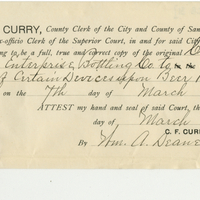 CURRY, County Clerk of the City and County of San
-officio Clerk of the Superior Court, in and for said City
ing to be a full, true and correct copy of the original
Enterprise Bottling Co to in the
of Certain Devices upon Beer
on the 7th day of March
ATTEST my hand and seal of said Court, the
day of March
C. F. CUR
By Wm. A. Deane